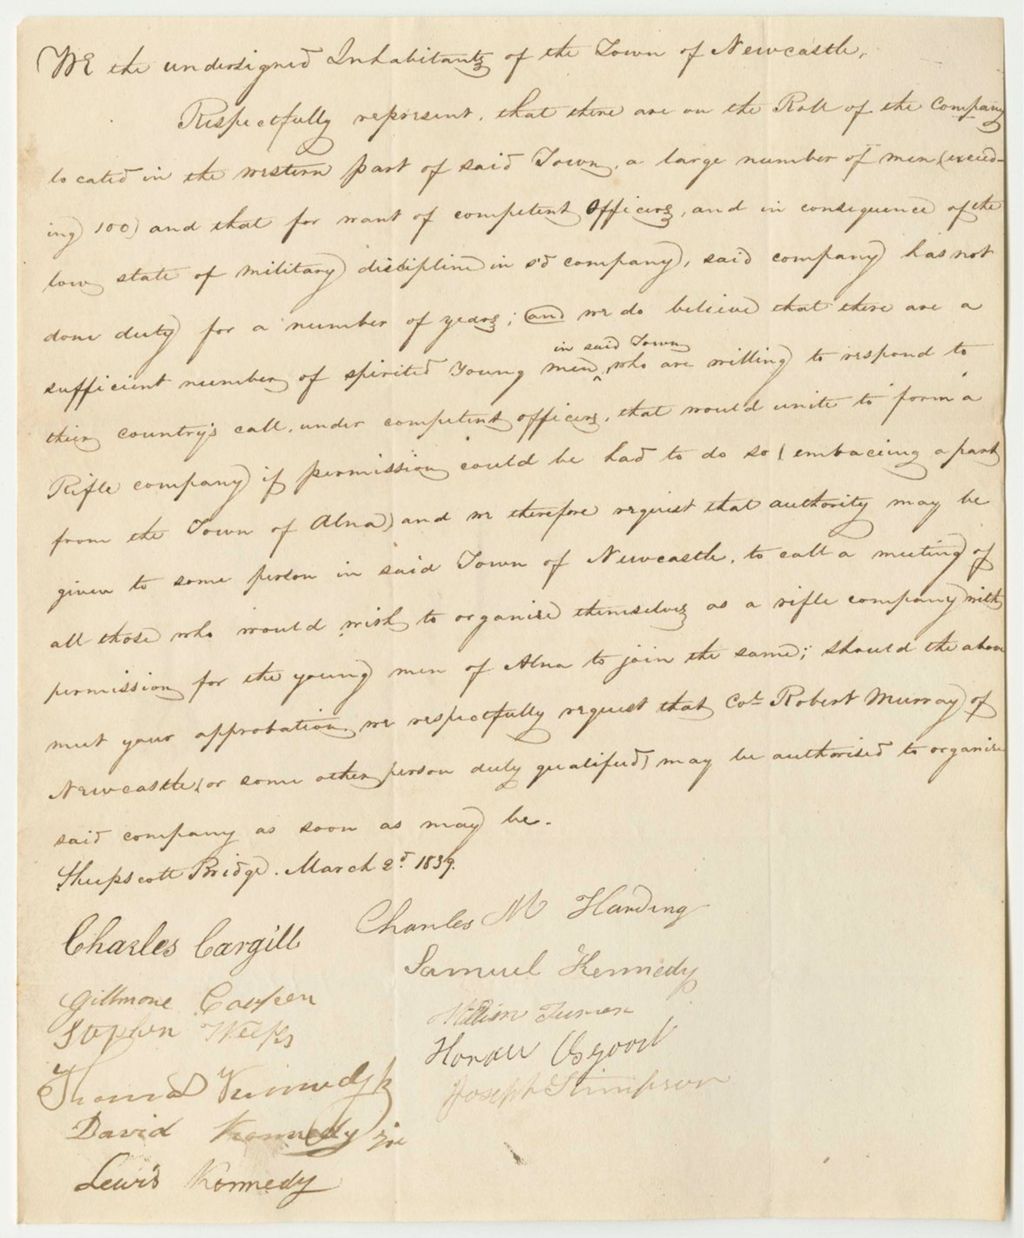 We the undersigned Inhabitants of the Town of Newcastle,
Respectfully represent, that there are on the Roll of the Company
located in the western part of said Town, a large number of men (exceed-
ing 100) and that for want of competent Officers, and in consequence of the
low state of military discipline in sd company, said company has not
done duty for a number of years; and we do believe that there are a
in said Town
sufficient number of spirited Young men, who are willing to respond to
their country's call, under competent officers, that would unite to form a
Rifle company if permission could be had to do so (embracing a part
from the Town of Alna) and we therefore request that authority may be
given to some person in said Town of Newcastle, to call a meeting of
all those who would wish to organise themselves as a rifle company with
permission for the young men of Alna to join the same; should the above
meet your approbation, we respectfully request that Col. Robert Murray of
Newcastle (or some other person duly qualified) may be authorised to organise
said company as soon as may be.
Sheepscott Bridge. March 2d 1839.
Charles Cargill
Charles M Harding
Samuel Kennedy
Stephen Weeks
Horace Osgood
Thomas Kennedy
Joseph Stimpson
David Kennedy
Lewis Kennedy